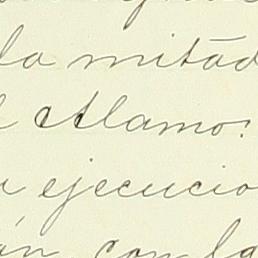 la mitad
Alamo.
ejecucio
con la